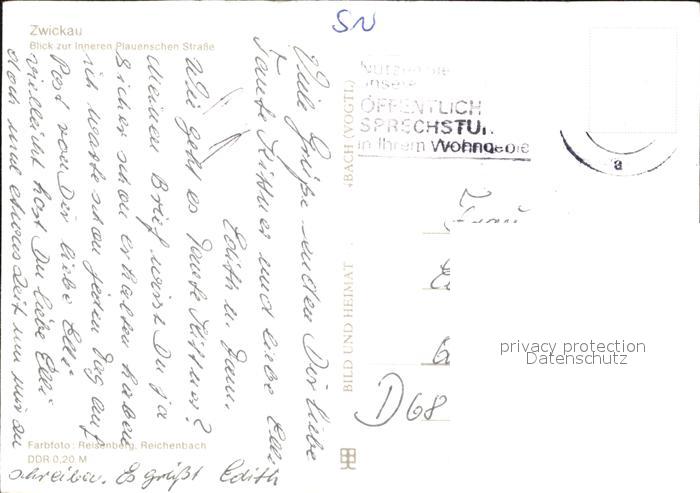 SN
Zwickau
Blick zur Inneren Plauenschen Straße
Nutzen Sie
unsere
ÖFFENTLICH
SPRECHSTU
in Ihrem Wohngebie
a
Viele Grüße senden Dir liebe
Tante Kittner und liebe Elli.
Edith u. Fam.
Wie geht es Tante Kittner?
Meinen Brief wirst Du ja
sicher schon erhalten haben
ich warte schon jeden Tag auf
Post von Dir liebe Elli
vielleicht hast Du liebe Elli
doch mal etwas Zeit um mir zu
schreiben. Es grüßt Edith
BILD UND HEIMAT
BACH (VOGTL)
Frau
D68
privacy protection
Datenschutz
Farbfoto: Reisenberg, Reichenbach
DDR 0,20 M